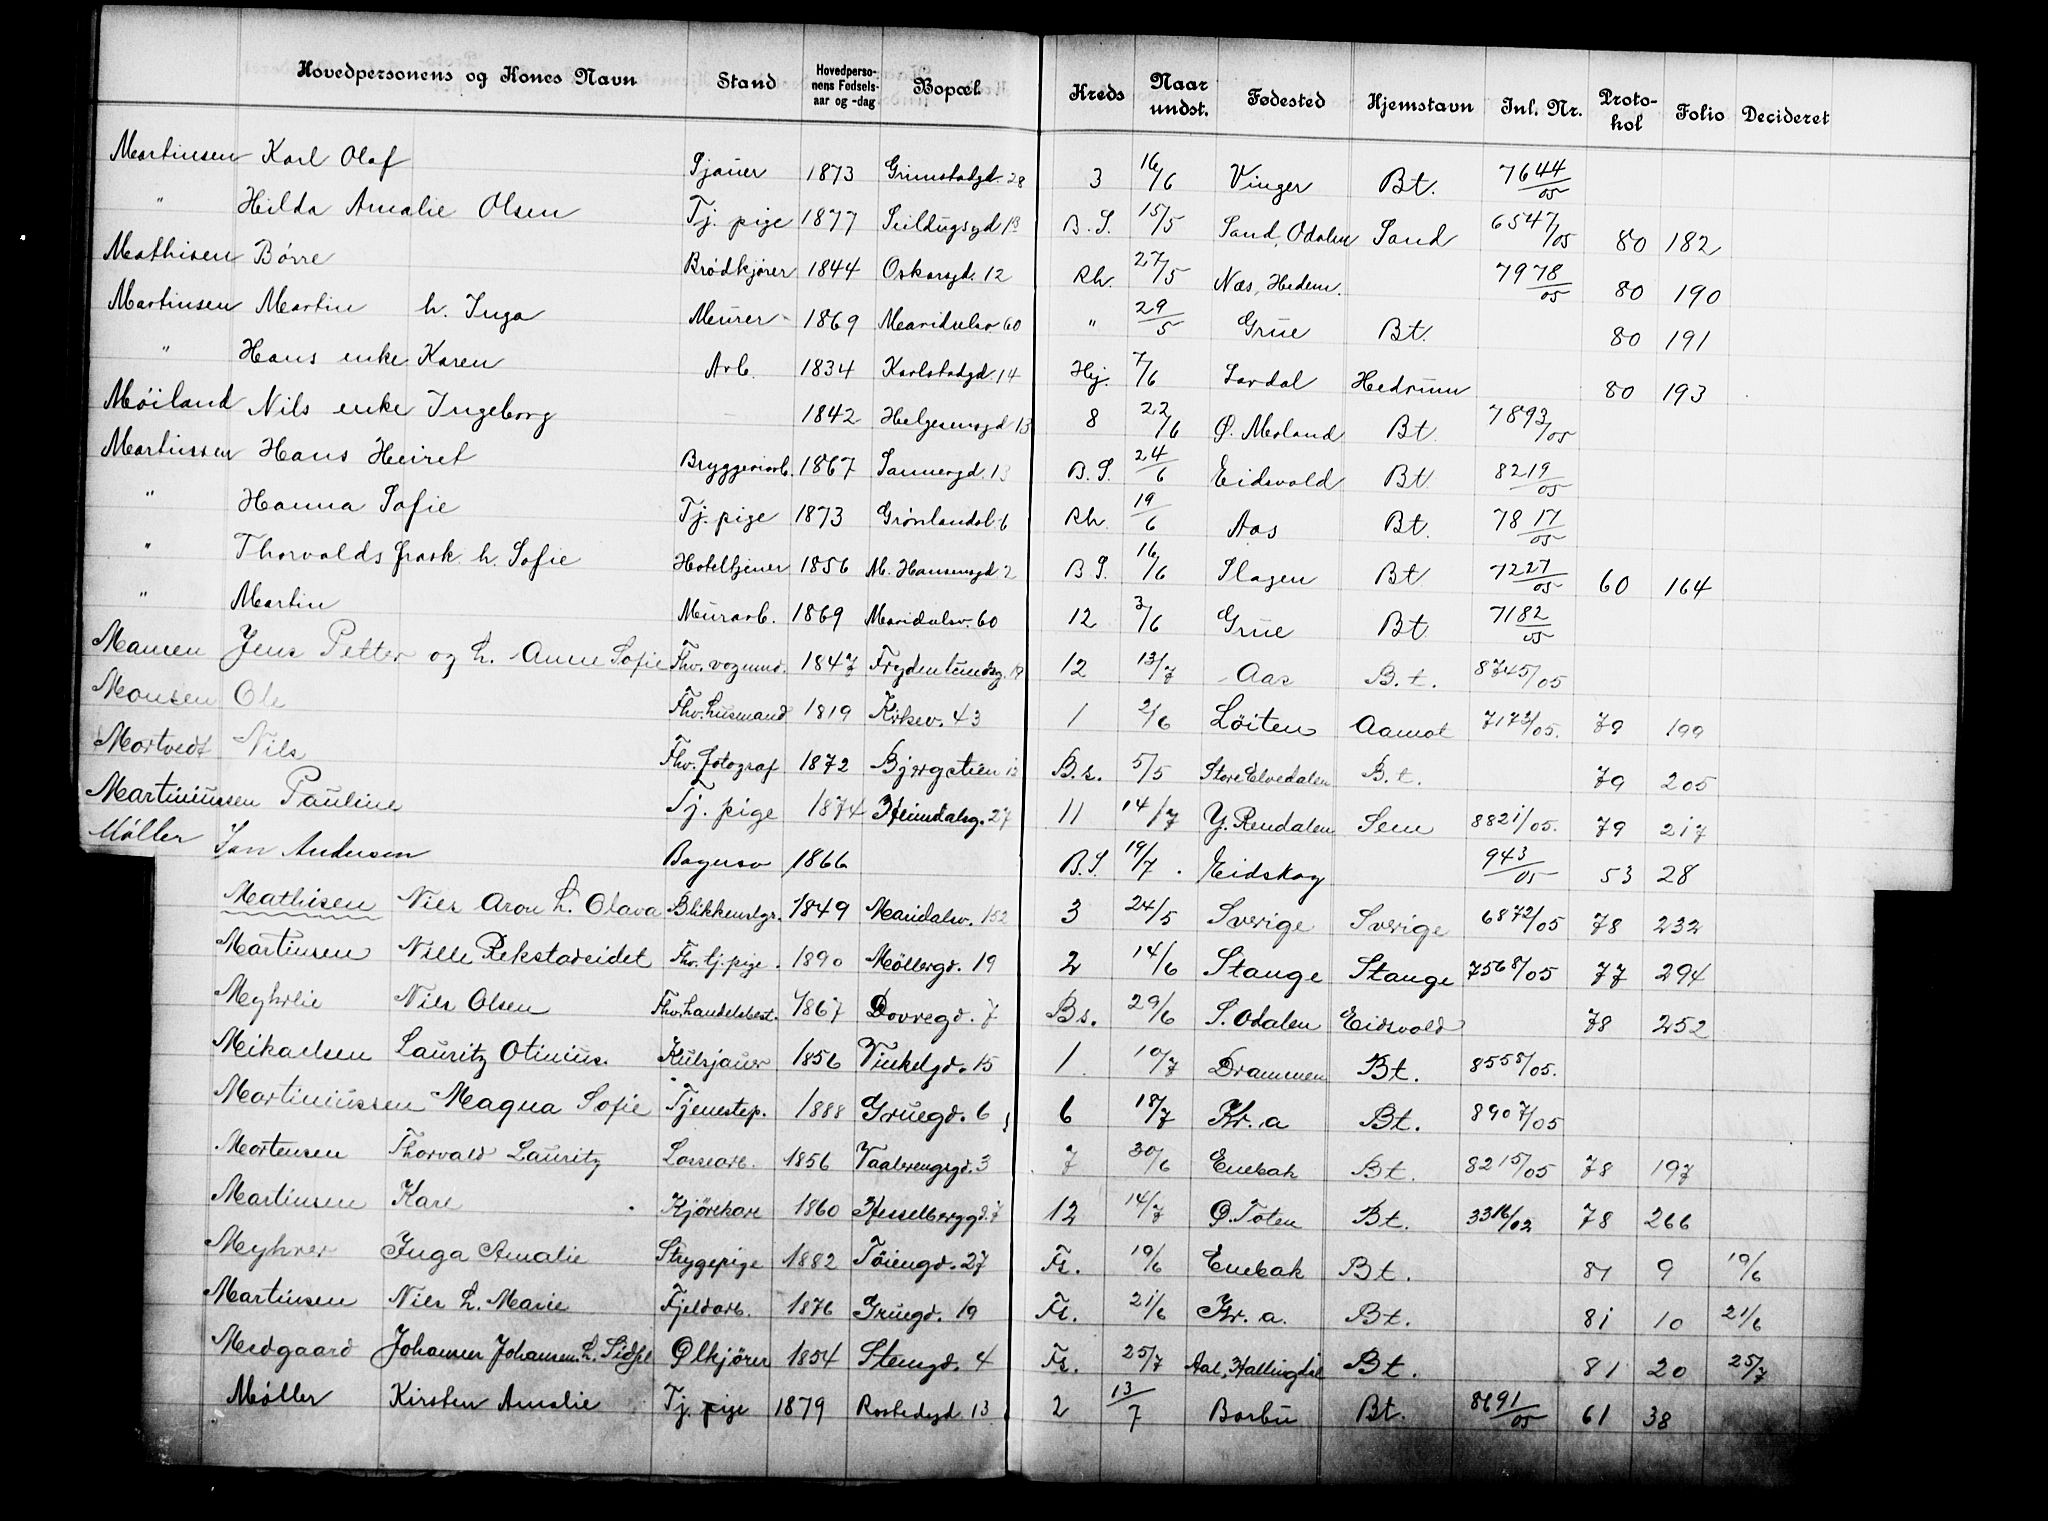 Hovedpersonens og Kones Navn Stand Hovedpersonens Fødselsaar og -dag Bopæl Kreds Naar undst. Fødested Hjemstavn Jnl. Nr. Protokol Folio Decideret
Martinsen Karl Olaf Sjauer 1873 Grimstadgd. 28 3 16/6 Vinger Bt. 7644/05
" Hilda Amalie Olsen Tj. pige 1877 Seildugsgd 13 B. S. 15/5 Sand, Odalen Sand 6547/05 80 182
Mathisen Børre Brødkjører 1844 Oskarsgd. 12 Rh. 27/5 Næs, Hedem. 7978/05 80 190
Martinsen Martin h. Inga Murer 1869 Maridalsv 60 " 29/5 Grue Bt. 80 191
" Hans enke Karen Arb. 1834 Karlstadgd. 14 Hj. 7/6 Lardal Hedrum 80 193
Møiland Nils enke Ingeborg 1842 Helgesensgd 13 8 22/6 Ø. Moland Bt. 7893/05
Martinssen Hans Heiret Bryggeriarb. 1867 Sannergd. 13 B. S. 24/6 Eidsvold Bt. 8219/05
" Hanna Sofie Tj. pige 1873 Grønlandsl. 6 Rh. 19/6 Aas Bt. 7817/05
" Thorvalds frask. h. Sofie Hoteltjener 1856 M. Hansensgd 2 B S. 16/6 Slagen Bt 7227/05 60 164
" Martin Murarb. 1869 Maridalsv. 60 12 3/6 Grue Bt 7182/05
Mansen Jens Petter og h. Anne Sofie Fhv. vognmd. 1847 Frydenlundsg. 19 12 13/7 Aas B. t. 8745/05
Monsen Ole Fhv. husmand 1819 Kirkev. 43 1 2/6 Løiten Aamot 7173/05. 79 199
Mortvedt Nils Fhv. fotograf 1872 Bjergstien 12 B. s. 5/5 Store Elvedalen B. t. 79 205
Martiniussen Pauline Tj. pige 1874 Heimdalsg. 27 11 14/7 Y. Rendalen Sem 8821/05. 79 217
Møller Jan Andersen Bagersv 1866 B. S. 19/7. Eidskog 943/05 53 28
Mathisen Nils Aron h. Olava Blikkenslgr. 1849 Maridalsv. 152 3 24/5 Sverige Sverige 6872/05 78 232
Martinsen Nille Rekstadeidet Fhv. tj. pige. 1890 Møllergd. 19 2 14/6 Stange Stange 7568/05 77 294
Myhrlie Nils Olsen Fhv. handelsbest. 1867 Dovregd. 7 B s. 29/6 S. Odalen Eidsvold 78 252
Mikaelsen Lauritz Otinius. Kulsjauer 1856 Vinkelgd. 15 1 10/7 Drammen Bt. 8558/05.
Martiniussen Magna Sofie Tjenestep. 1888 Gruegd. 6 6 18/7 Kr. a Bt. 8907/05
Mortensen Thorvald Lauritz Lossearb. 1856 Vaalerengsgd. 3 7 30/6 Enebak Bt. 8215/05 78 197
Martinsen Kare Kjørekare 1860 Hesselberggd. 7 12 14/7 Ø. Toten Bt. 3316/02 78 266
Myhrer Inga Amalie Strygepige 1882 Tøiengd. 27 Fs. 19/6 Enebak Bt. 81 9 19/6
Martinsen Nils h. Marie Fjeldarb. 1876 Gruegd. 19 Fs. 21/6 Kr. a. Bt. 81 10 21/6
Medgaard Johannes Johansen h. Sidsel Ølkjører 1854 Stengd. 4 Fs. 25/7 Aal, Hallingdal Bt. 81 20 25/7
Møller Kirsten Amalie Tj. pige 1879 Rostedsgd. 13 2 13/7 Barbu Bt. 8691/05 61 38